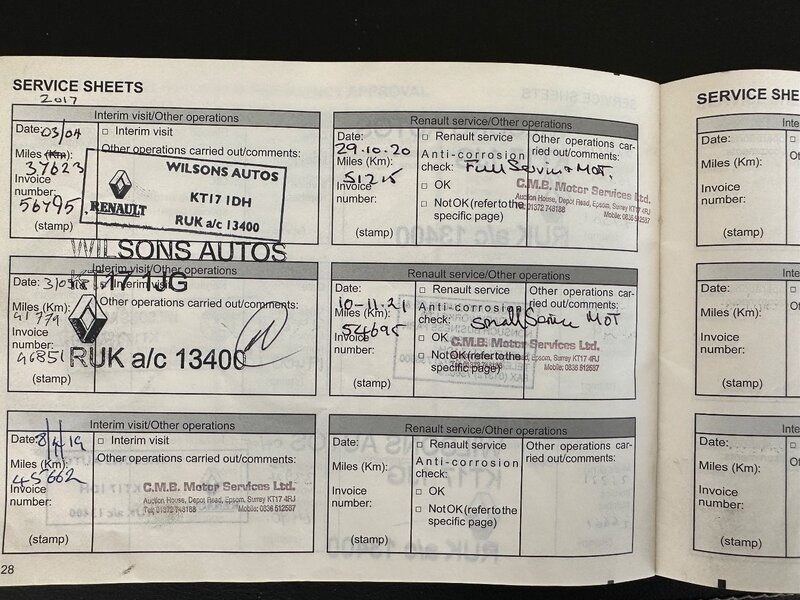 SERVICE SHEETS
2017
Interim visit/Other operations
Date: 03/04
Interim visit
Miles (Km):
Other operations carried out/comments:
37623
Invoice
number:
56795
(stamp)
WILSONS AUTOS
KT17 1DH
RENAULT
RUK a/c 13400
WILSONS AUTOS
KT17 1JG
RUK a/c 13400
Interim visit/Other operations
Date:
Interim visit
Miles (Km):
Other operations carried out/comments:
41779
Invoice
number:
46851
(stamp)
Interim visit/Other operations
Date:
Interim visit
Miles (Km):
Other operations carried out/comments:
45662
Invoice
number:
(stamp)
C.M.B. Motor Services Ltd.
Auction House, Depot Road, Epsom, Surrey KT17 4RJ
Tel: 01372 748188 Mobile: 0836 512587
28
Renault service/Other operations
Date:
29.10.20
Renault service
Other operations car-
ried out/comments:
Miles (Km):
51215
Anti-corrosion
check:
Full Service + MOT.
Invoice
number:
OK
Not OK (refer to the
specific page)
(stamp)
C.M.B. Motor Services Ltd.
Auction House, Depot Road, Epsom, Surrey KT17 4RJ
Tel: 01372 748188 Mobile: 0836 512587
Renault service/Other operations
Date:
10-11.21
Renault service
Other operations car-
ried out/comments:
Miles (Km):
54695
Anti-corrosion
check:
Small Service MOT
Invoice
number:
OK
Not OK (refer to the
specific page)
(stamp)
C.M.B. Motor Services Ltd.
Road, Epsom, Surrey KT17 4RJ
Mobile: 0836 512587
Renault service/Other operations
Date:
Renault service
Other operations car-
ried out/comments:
Miles (Km):
Anti-corrosion
check:
Invoice
number:
OK
Not OK (refer to the
specific page)
(stamp)
SERVICE SHE
Inte
Date:
Miles (Km):
Invoice
number:
(stamp)
Inte
Date:
Miles (Km):
Invoice
number:
(stamp)
Inte
Date:
Miles (Km):
Invoice
number:
(stamp)